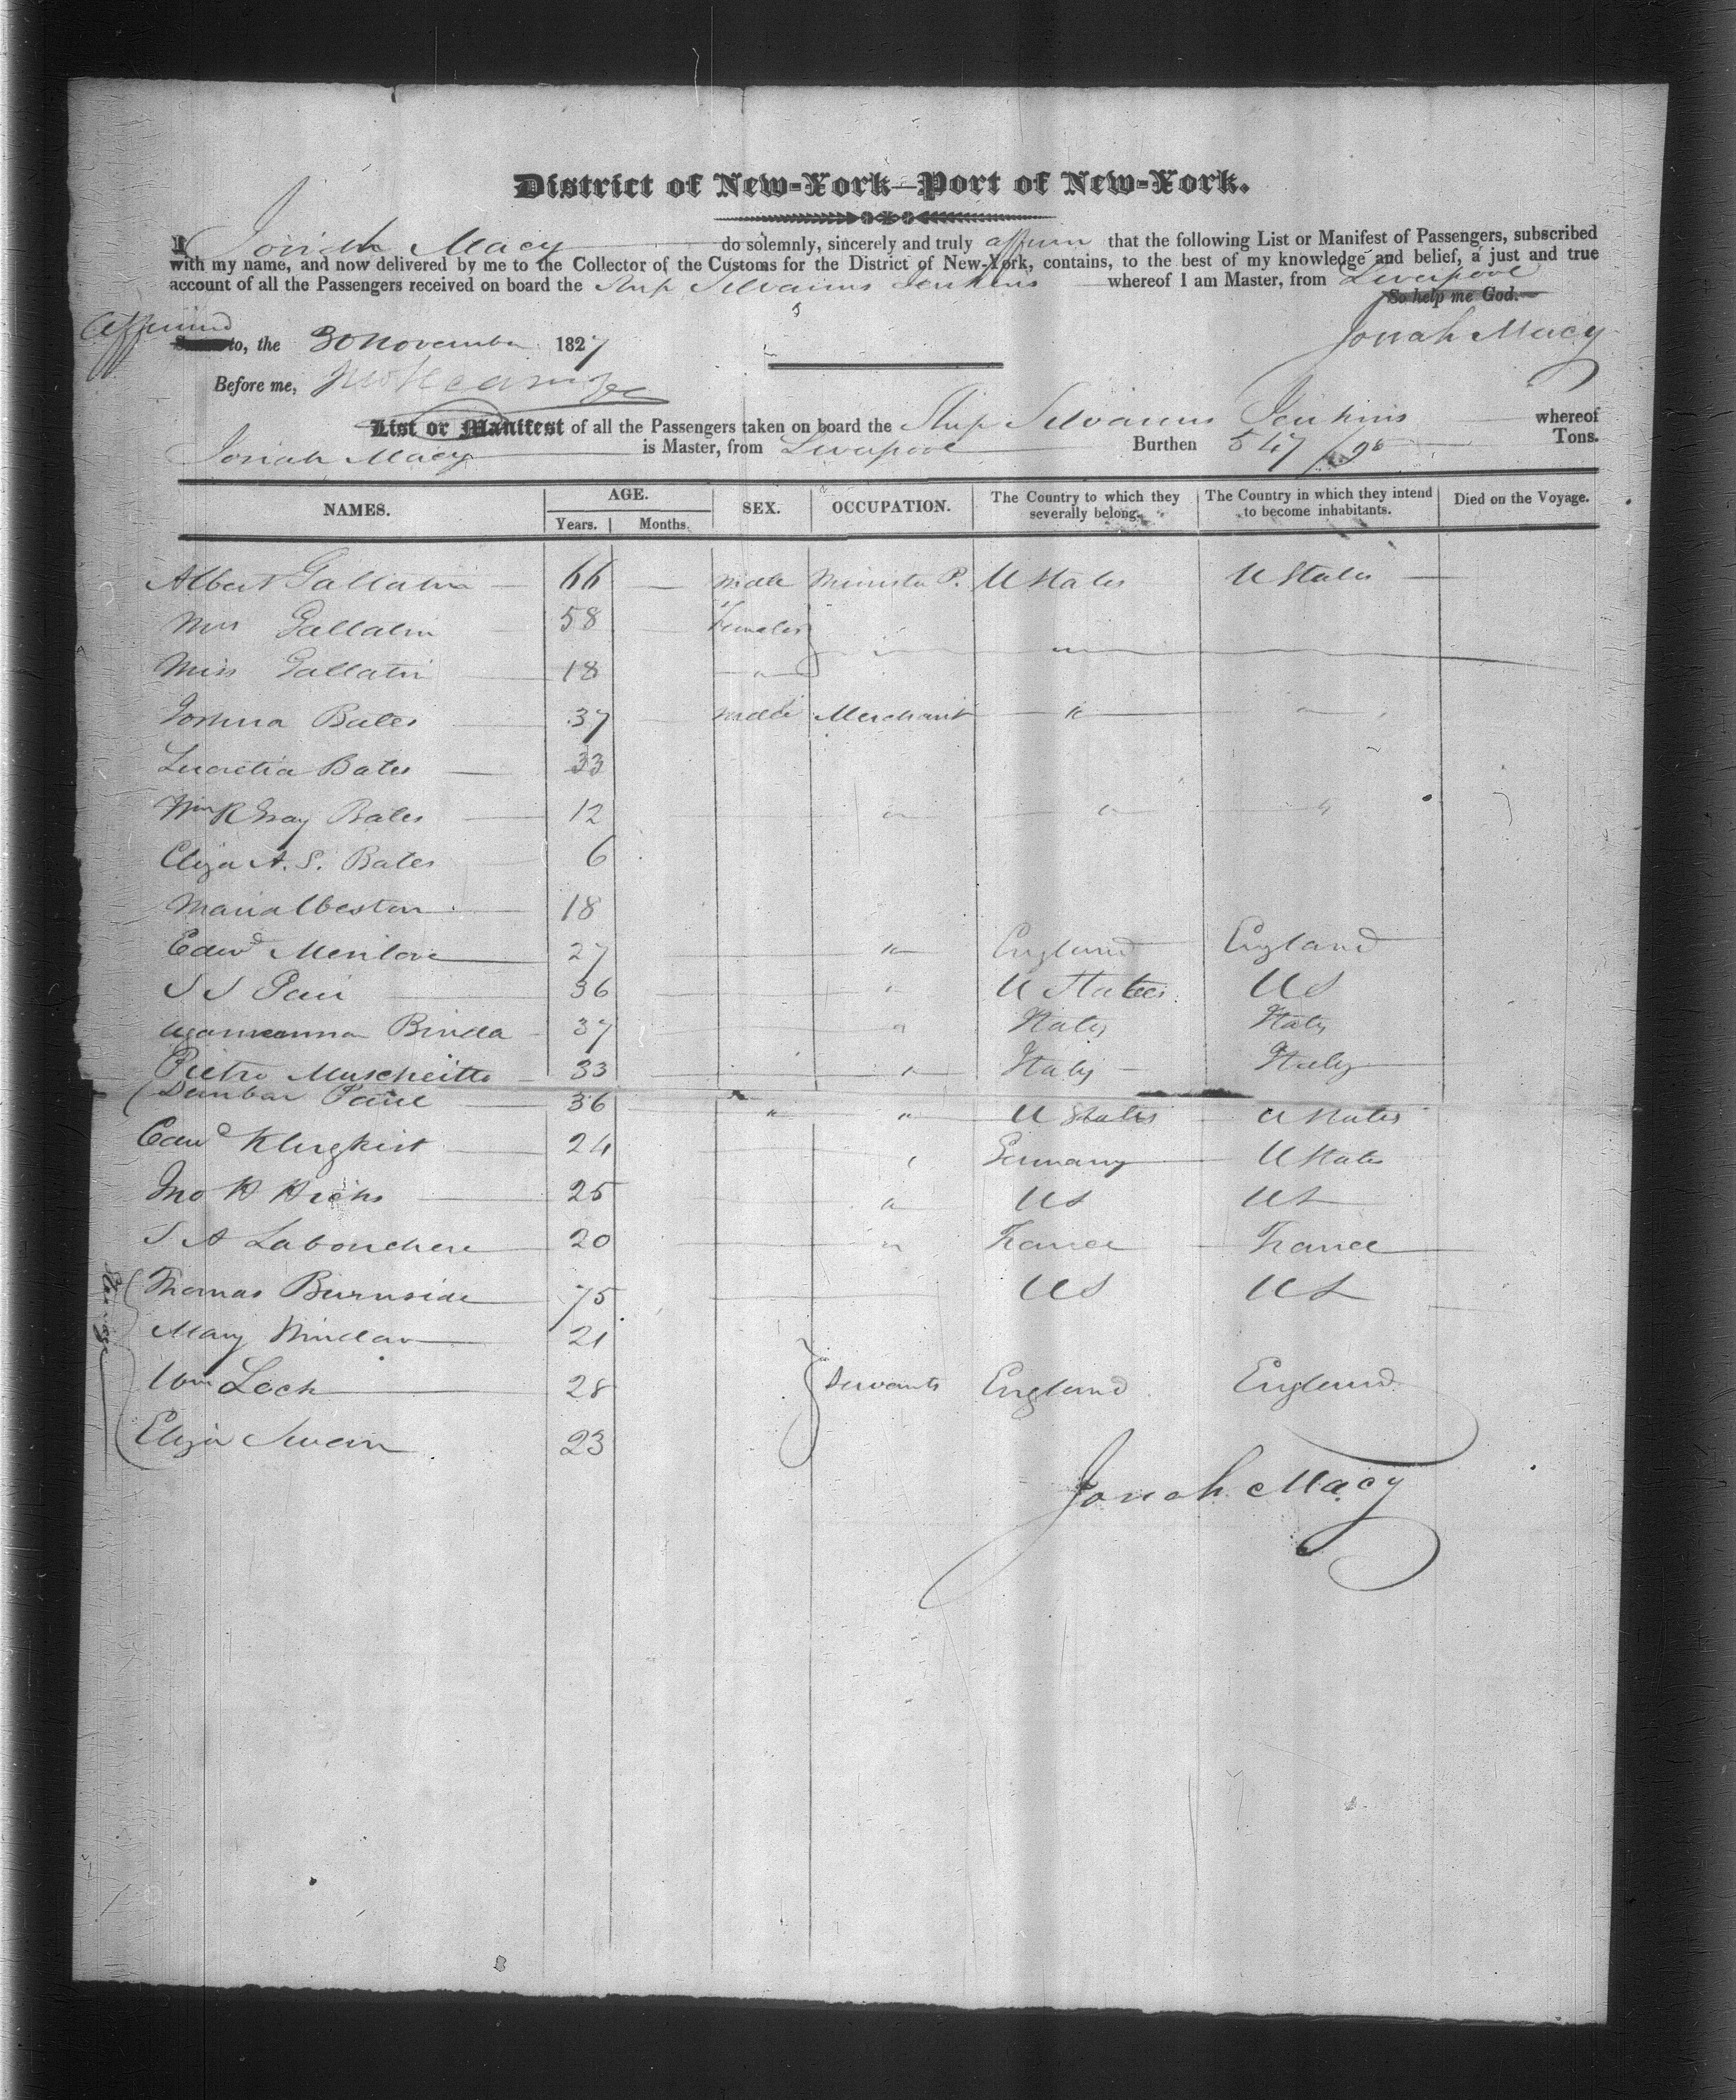 District of New-York—Port of New-York.
I Josiah Macy do solemnly, sincerely and truly affirm that the following List or Manifest of Passengers, subscribed
with my name, and now delivered by me to the Collector of the Customs for the District of New-York, contains, to the best of my knowledge and belief, a just and true
account of all the Passengers received on board the Ship Silvanus Jenkins whereof I am Master, from Liverpool
So help me God.
Affirmed to, the 30 November 1827 Josiah Macy
Before me,
List or Manifest of all the Passengers taken on board the Ship Silvanus Jenkins whereof
Josiah Macy is Master, from Liverpool Burthen 547 Tons.
NAMES. AGE. Years. Months. SEX. OCCUPATION. The Country to which they severally belong. The Country in which they intend to become inhabitants. Died on the Voyage.
Albert Gallatin 66 male Minister P. U States U States
Mrs Gallatin 58 Females
Miss Gallatin 18 "
Joshua Bates 37 male Merchant " "
Lucretia Bates 33
Wm R Gray Bates 12 " " "
Eliza A. S. Bates 6
Maria 18
Edwd Menlove 27 " England England
36 " U States US
Binda 37 " Italy Italy
Pietro Muscheitte 33 " Italy Italy
Dunbar Paul 36 " " U States U States
Edwd Klugkist 24 " Germany U States
Jno H Hicks 25 " US US
Labouchere 20 " France France
Thomas Burnside 75 US US
Mary 21
Wm Lock 28 Servants England England
Eliza Swain 23
Steerage
Josiah Macy